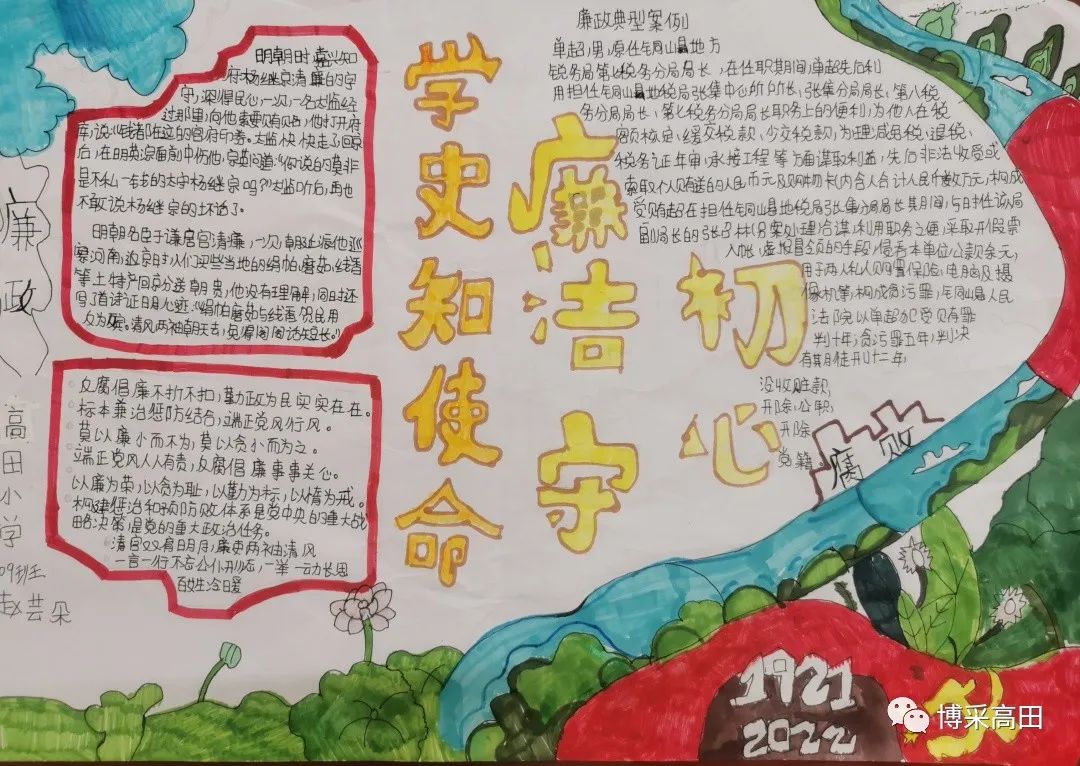 学史知使命
廉洁守
初心
明朝时嘉兴知
府杨继宗清廉的守
守,深得民心,一次,一名太监经
过那里,向他索要贿赂,他打开府
库,说:"钱都在这的官府印券。太监快快走了回京
后,在明英宗面前中伤他,宗英问道:"你说的莫非
是不私一钱的太守杨继宗吗?"太监听后,再也
不敢说杨继宗的坏话了。
明朝名臣于谦居官清廉,一次朝上派他巡
察河南,返京时,人们买些当地的绢帕、蘑菇、线香
等土特产回京分送朝贵,他没有理解,同时还
写了首诗证日月心迹:"绢帕蘑菇与线香,贸民用
反为殃,清风两袖朝天去,免得阎阎话短长。"
反腐倡廉不折不扣,勤政为民实实在在。
标本兼治惩防结合,端正党风行风。
莫以廉小而不为,莫以贪小而为之。
端正党风人人有责,反腐倡廉事事关心。
以廉为荣,以贪为耻,以勤为标,以惰为戒。
构建惩治和预防败体系是党中央的重大战
略决策,是党的重大政治任务。
清官双肩日月,廉吏两袖清风
一言一行不忘公仆形态,一举一动长思
百姓冷暖
廉政典型案例
单超,男,原任铜山县地方
税务局第七税务分局局长,在任职期间,单超先后利
用担任铜山县地税局张集中心所所长,张集分局局长,第八税
务分局局长,第七税务分局局长职务上的便利,为他人在税
额核定,缓交税款,少交税款,为理减免税、退税、
税务证年审,承接工程等方面谋取利益,先后非法收受或
索取他人贿送的人民币元及购物卡(内含人合计人民币数万元,构成
受贿超在担任铜山县地税局张集分局局长其期间,与时任该局
副局长的张召林(另案处理)合谋,利用职务之便,采取开假票
入帐,虚报冒领的手段,侵吞本单位公款余元,
用于两人私人购置保险,电脑及摄
像机等,构成贪污罪,铜山县人民
法院以单超犯受贿罪
判十年,贪污罪五年,判决
有其月徒刑十二年,
没收赃款,
开除公职,
开除
党籍。
腐败
廉政
高田小学
09班
赵芸朵
1921
2022
博采高田